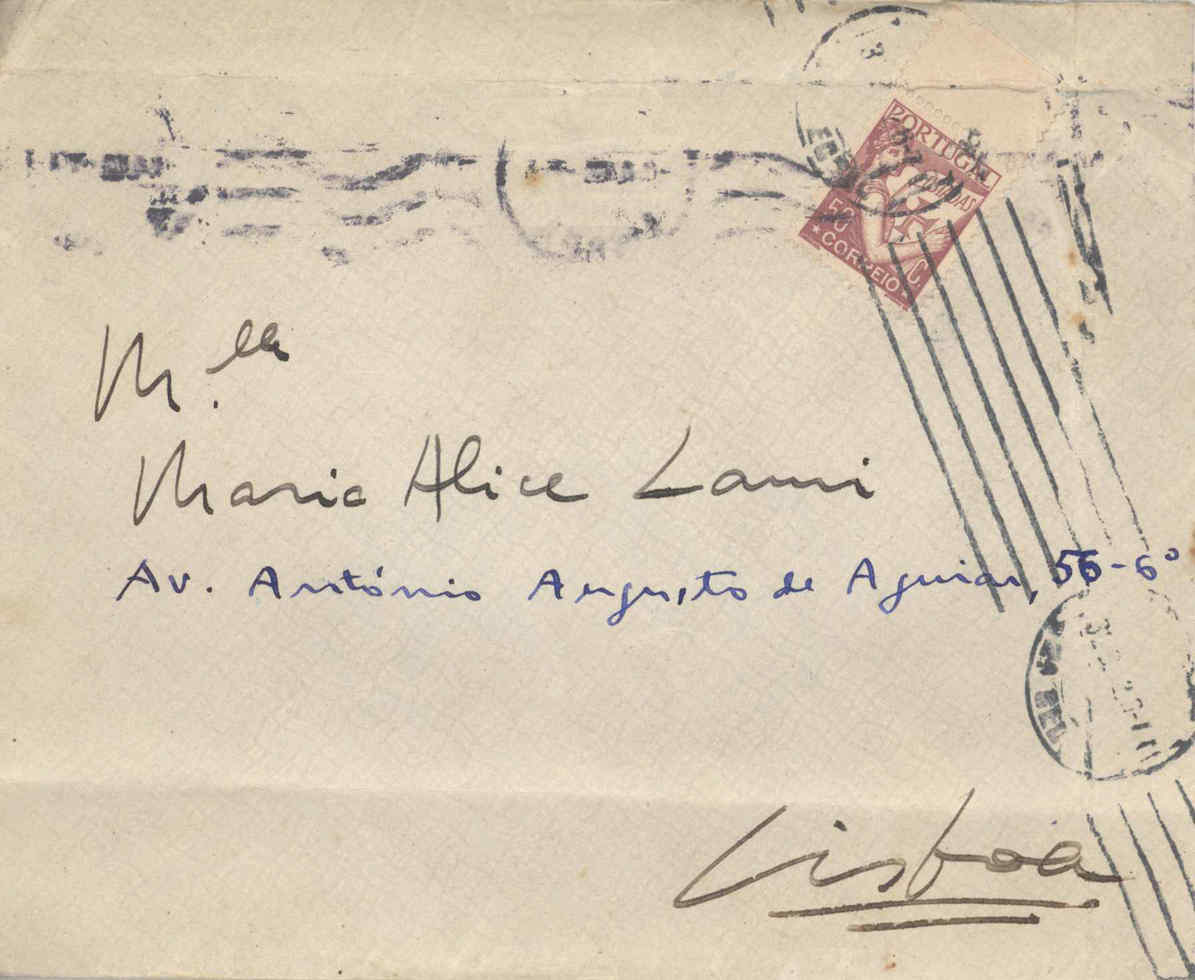 PORTUGAL
LUSIADAS
50 C.
CORREIO
M.lle
Maria Alice Lami
Av. António Augusto de Aguiar, 56-6º
Lisboa